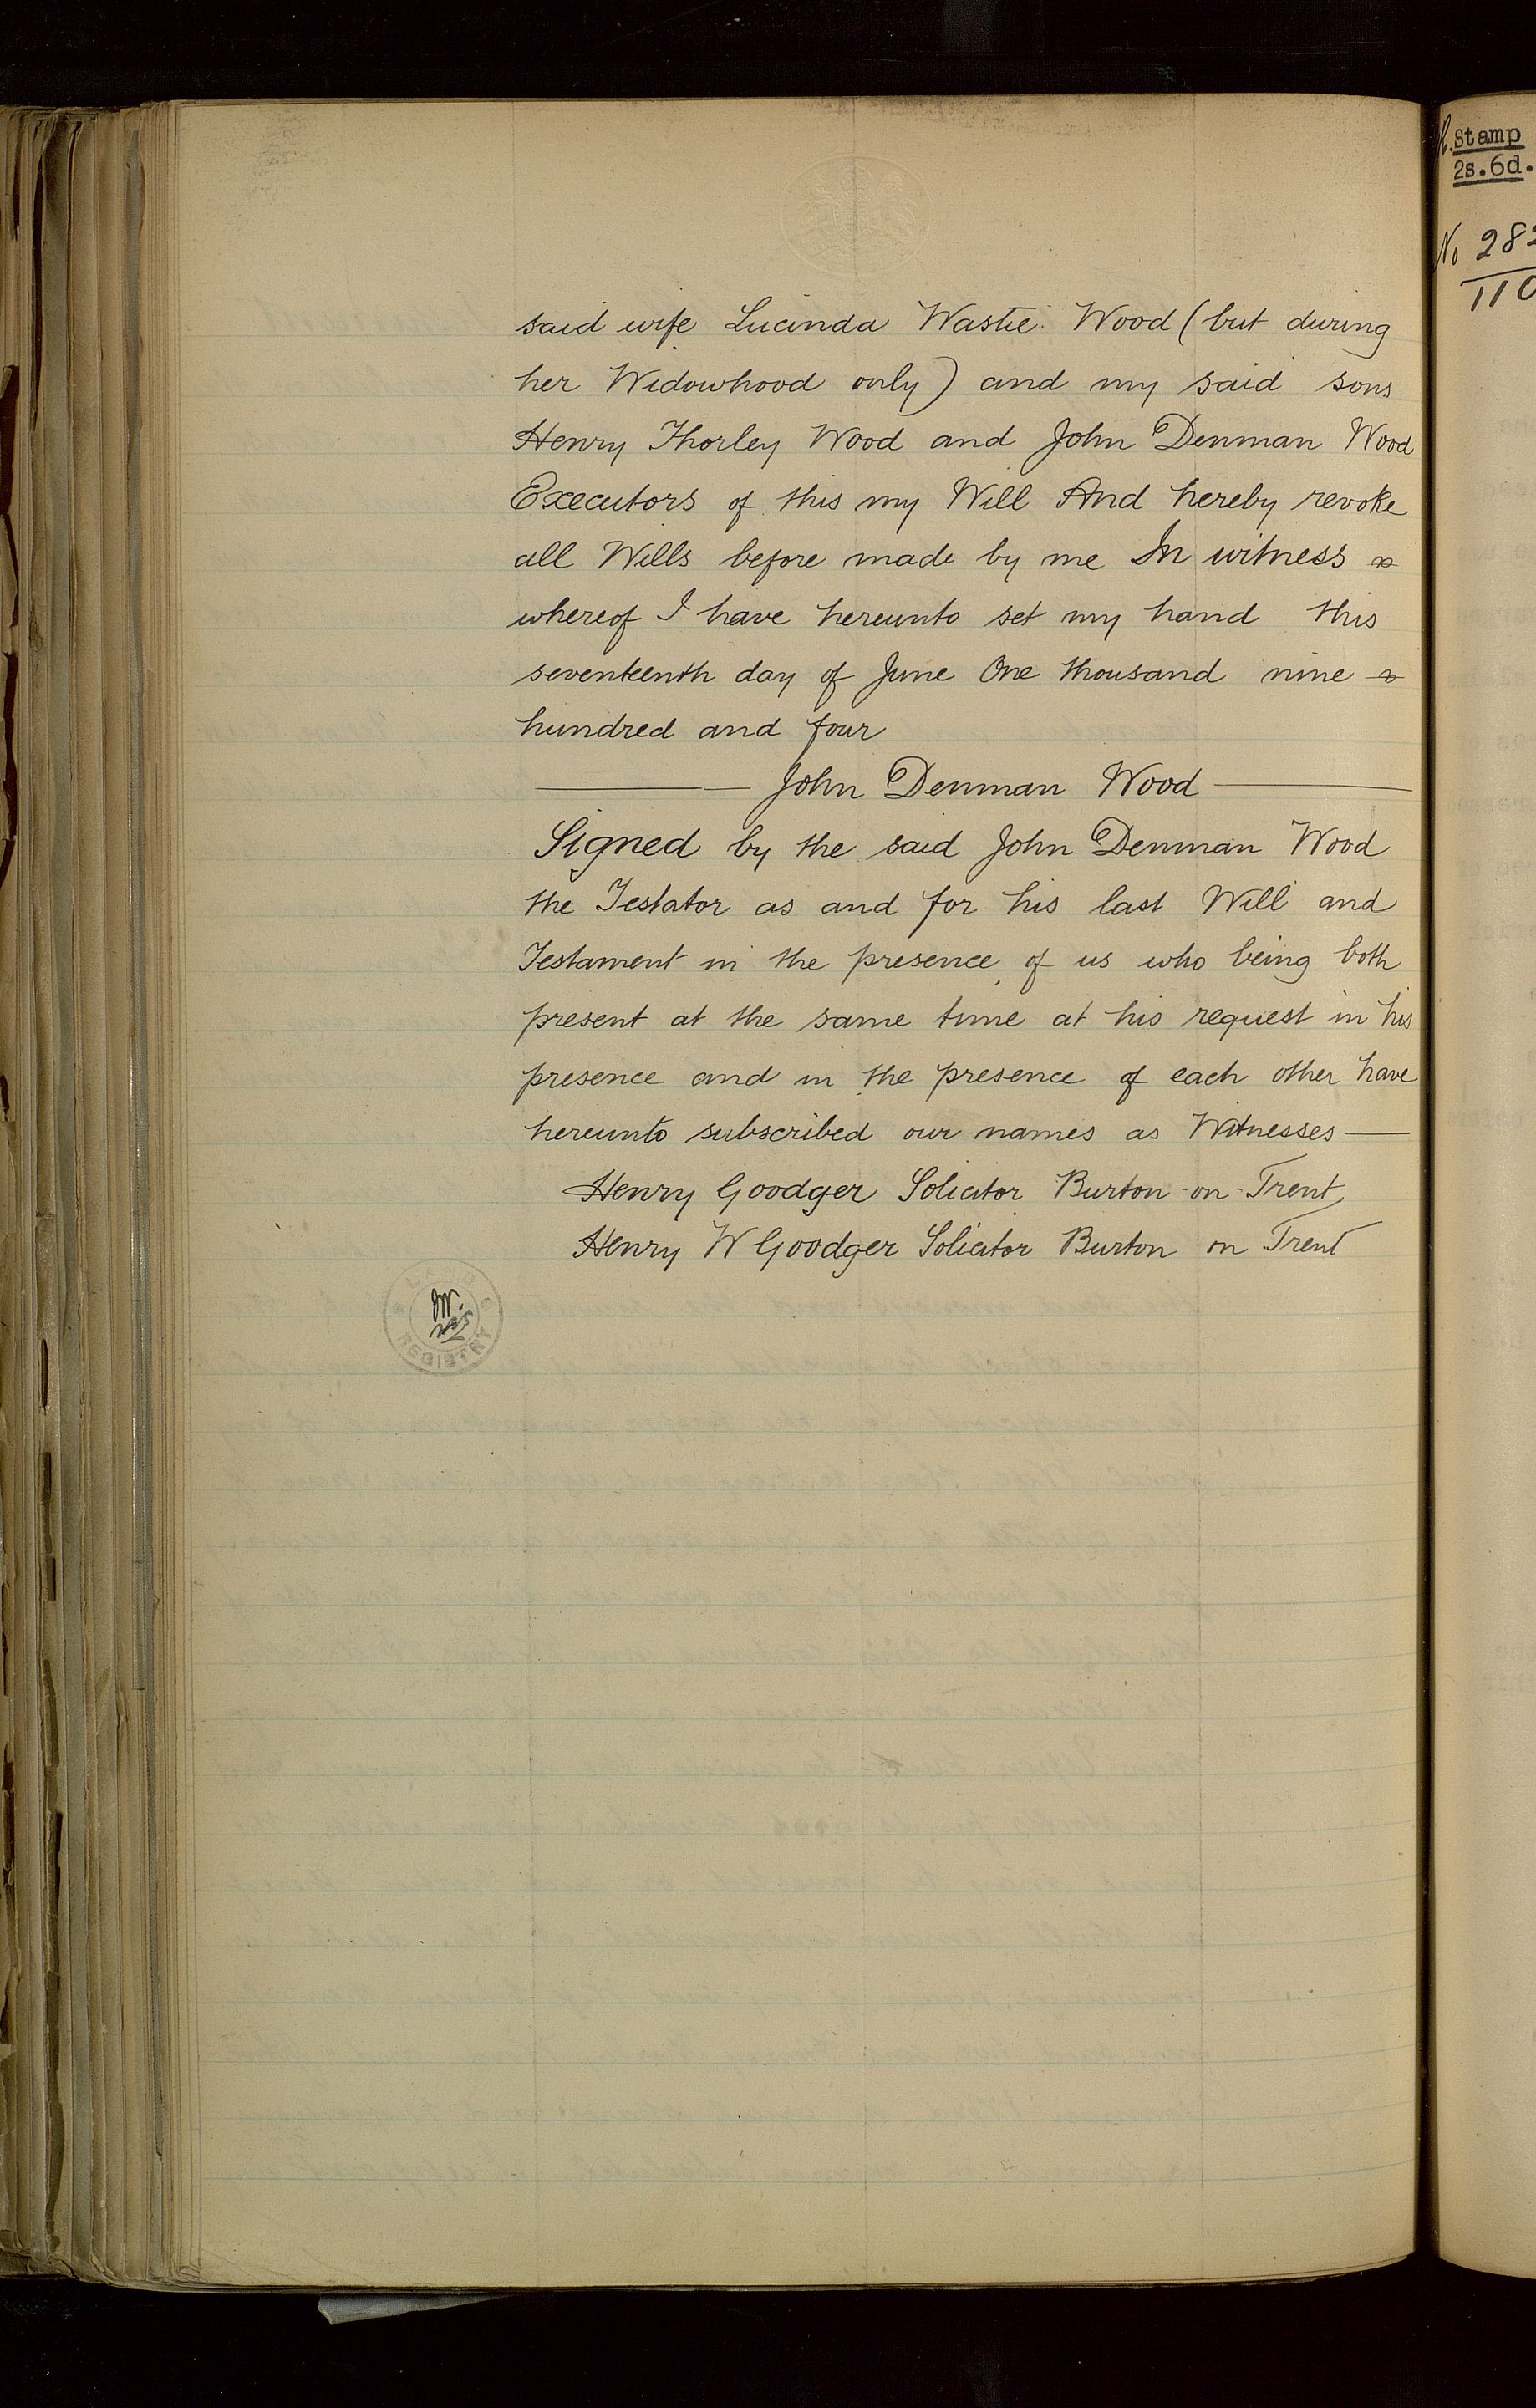 said wife Lucinda Wastie Wood (but during
her Widowhood only) and my said sons
Henry Thorley Wood and John Denman Wood
Executors of this my Will And hereby revoke
all Wills before made by me In witness
whereof I have hereunto set my hand this
seventeenth day of June One thousand nine
hundred and four
John Denman Wood
Signed by the said John Denman Wood
the Testator as and for his last Will and
Testament in the presence of us who being both
present at the same time at his request in his
presence and in the presence of each other have
hereunto subscribed our names as Witnesses
Henry Goodger Solicitor Burton-on-Trent
Henry W Goodger Solicitor Burton on Trent
REGISTRY
Stamp
2s.6d.
No 282
110